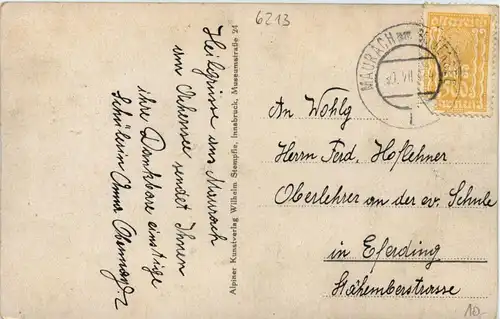 6213
Heilgrüsse aus Maurach
am Achensee sendet Ihnen
ihre dankbare einstige
Schülerin Anna
Alpiner Kunstverlag Wilhelm Stempfle, Innsbruck, Museumstraße 24
MAURACH am
An Wohlg
Herrn Ferd. Hoflehner
Oberlehrer an der ev. Schule
in Eferding
Stahembergstrasse
10,-